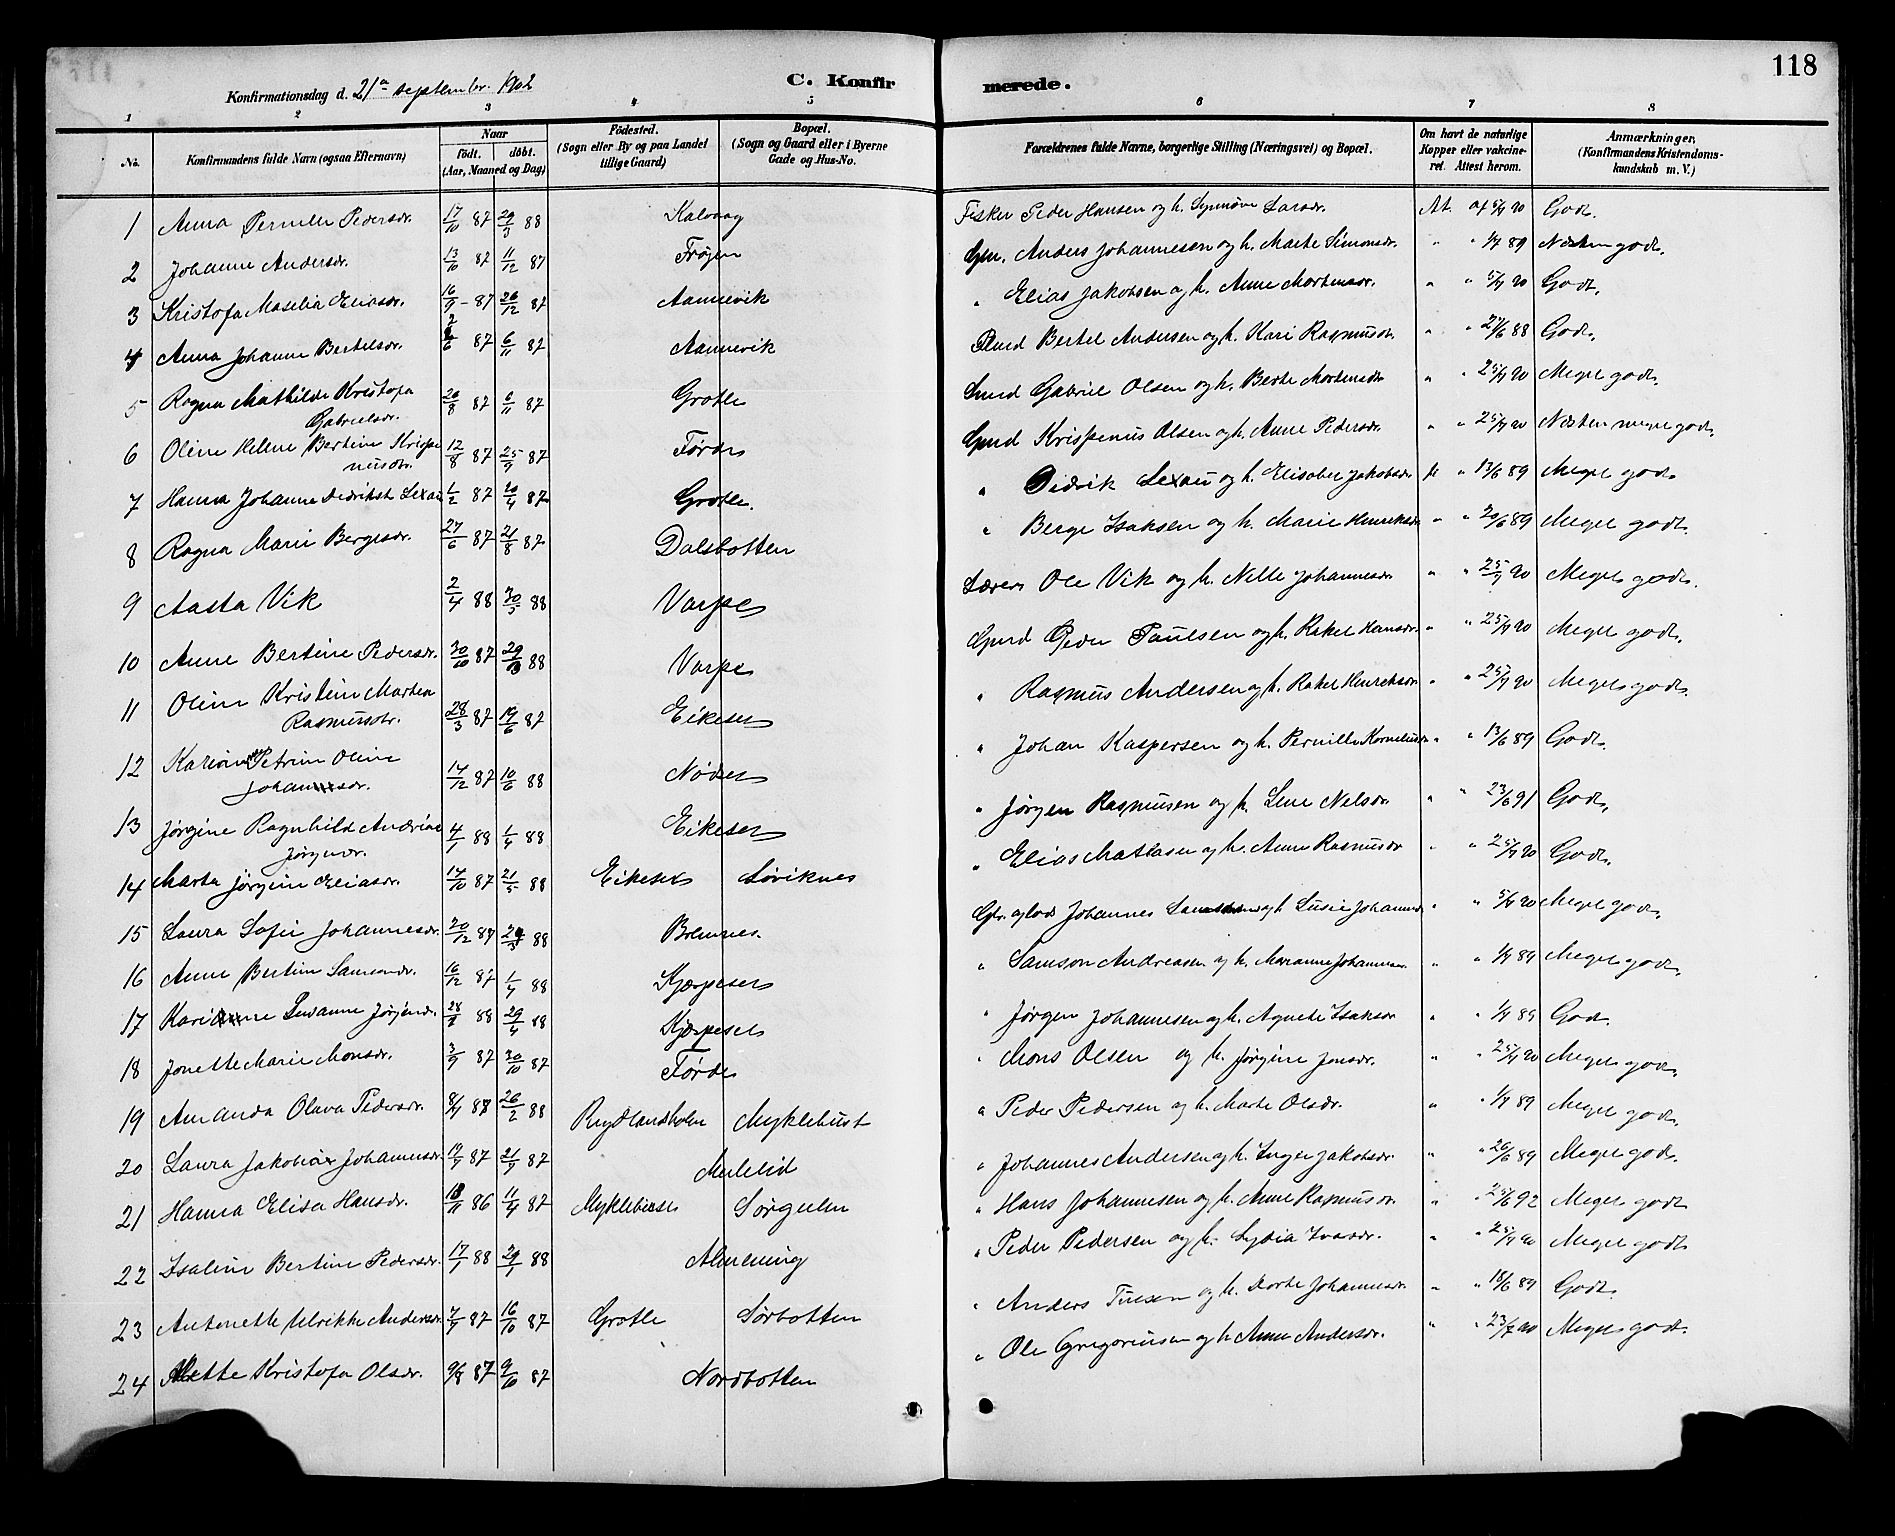 118
Konfirmationsdag d. 21de september 1902
C. Konfirmerede.
1 2 3 4 5 6 7 8
No.
Konfirmandens fulde Navn (ogsaa Efternavn)
Naar
født. døbt.
(Aar, Maaned og Dag)
Fødested.
(Sogn eller By og paa Landet tillige Gaard)
Bopæl.
(Sogn og Gaard eller i Byerne Gade og Hus-No.
Forældrenes fulde Navne, borgerlige Stilling (Næringsvei) og Bopæl.
Om havt de naturlige Kopper eller vakcineret. Attest herom.
Anmærkninger,
(Konfirmandens Kristendomskundskab m. V.)
1 Anna Pernille Pedersdr. 17/10 87 29/3 88 Kalvaag Fisker Peder Hansen og h. Synnøve Larsdr. At. af 5/9 90 Godt.
2 Johanne Andersdr. 13/10 87 11/12 87 Frøien Gm. Anders Johannesen og h. Marte Simonsdr. " " 1/9 89 Næsten godt.
3 Kristofa Maselia Eliasdr. 16/9 87 26/12 87 Aannevik " Elias Jakobsen og h. Anne Mortensdr. " " 5/9 90 Godt.
4 Anna Johanne Bertelsdr. 2/6 87 6/11 87 Aannevik Bertel Andersen og h. Kari Rasmusdr. " " 27/6 88 Godt.
5 Ragna Mathilde Kristofa Gabrielsdr. 26/8 87 6/11 87 Grotle Gmd Gabriel Olsen og h. Berte Mortensdr " " 25/9 90 Meget godt.
6 Oline Helene Bertine Krispenusdr. 12/8 87 25/9 87 Førde Gmd Krispenus Olsen og h. Anne Pedersdr. " " 25/9 90 Næsten meget godt.
7 Hanna Johanne Didrikst Lexau 1/2 87 20/4 87 Grotle. " Didrik Lexau og h. Elisabet Jakobsdr " " 13/6 89 Meget godt
8 Ragna Marie Bergesdr. 27/6 87 21/8 87 Dalsbotten " Berge Isaksen og h. Marie Henriksdr " " 20/6 89 Meget godt.
9 Aasta Vik 2/4 88 30/5 88 Varpe Lærer Ole Vik og h. Nelle Johannesdr " " 25/9 90 Meget godt.
10 Anne Bertine Pedersdr. 30/10 87 29/3 88 Varpe Gmd Peder Paulsen og h. Rakel Hansdr. " " 25/9 90 Meget godt.
11 Oline Kristine Martea Rasmusdr. 28/3 87 19/6 87 Eikeset " Rasmus Andersen og h. Rakel Henriksdr " " 25/9 90 Meget godt.
12 Karianne Petrine Oline Johansdr. 14/12 87 10/6 88 Nødset " Johan Kaspersen og h. Pernille Korneliusdr " " 13/6 89 Godt.
13 Jørgine Ragnhild Andrine Jørgensdr. 4/1 88 1/4 88 Eikeset " Jørgen Rasmusen og h. Lene Nelsdr. " " 23/6 91 Godt.
14 Marta Jørgine Eliasdr. 14/10 87 21/5 88 Eikeset Løviknes " Elias Matiasen og h. Anne Rasmusdr " " 25/9 90 Godt.
15 Laura Sofie Johannesdr. 20/12 87 29/3 88 Bremnes. Johannes og h. Lusie Johannesdr " " 5/9 90 Meget godt.
16 Anne Bertine Samsondr. 16/12 87 1/4 88 Kjerpeset " Samson Andreasen og h. Marianne Johannesdr. " " 1/9 89 Meget godt.
17 Karianne Susanne Jørgensdr. 28/2 88 29/4 88 Kjerpeset " Jørgen Johannesen og h. Agnete Isaksdr " " 1/9 89 Godt.
18 Jonette Marie Monsdr. 3/9 87 30/10 87 Førde " Mons Olsen og h. Jørgine Jonsdr. " " 25/9 90 Meget godt.
19 Amanda Olava Pedersdr. 26/2 88 Rydlandsholm Myklebust " Peder Pedersen og h. Marte Olsdr. " " 1/9 89 Meget godt.
20 Laura Jakobine Johannesdr. 21/9 87 " Johannes Andersen og h. Inger Jakobsdr. " " 26/6 89 Meget godt.
21 Hanna Elisa Hansdr. 86 11/4 87 Myklebust Sørgulen " Hans Johannesen og h. Anne Rasmusdr " " 92 Meget godt
22 Isaline Bertine Pedersdr. 17/1 88 29/1 88 Almening " Peder Pedersen og h. Lydia Ivarsdr. " " 25/9 90 Meget godt
23 Antonette Ulrikke Andersdr. 7/9 87 16/10 87 Grotle Sørbotten " Anders Tuesen og h. Dorte Johannesdr. " " 18/6 89 Godt.
24 Mette Kristofa Olsdr. 9/8 87 9/10 87 Nordbotten " Ole Gregoriusen og h. Anne Andersdr. " " 23/7 90 Meget godt.